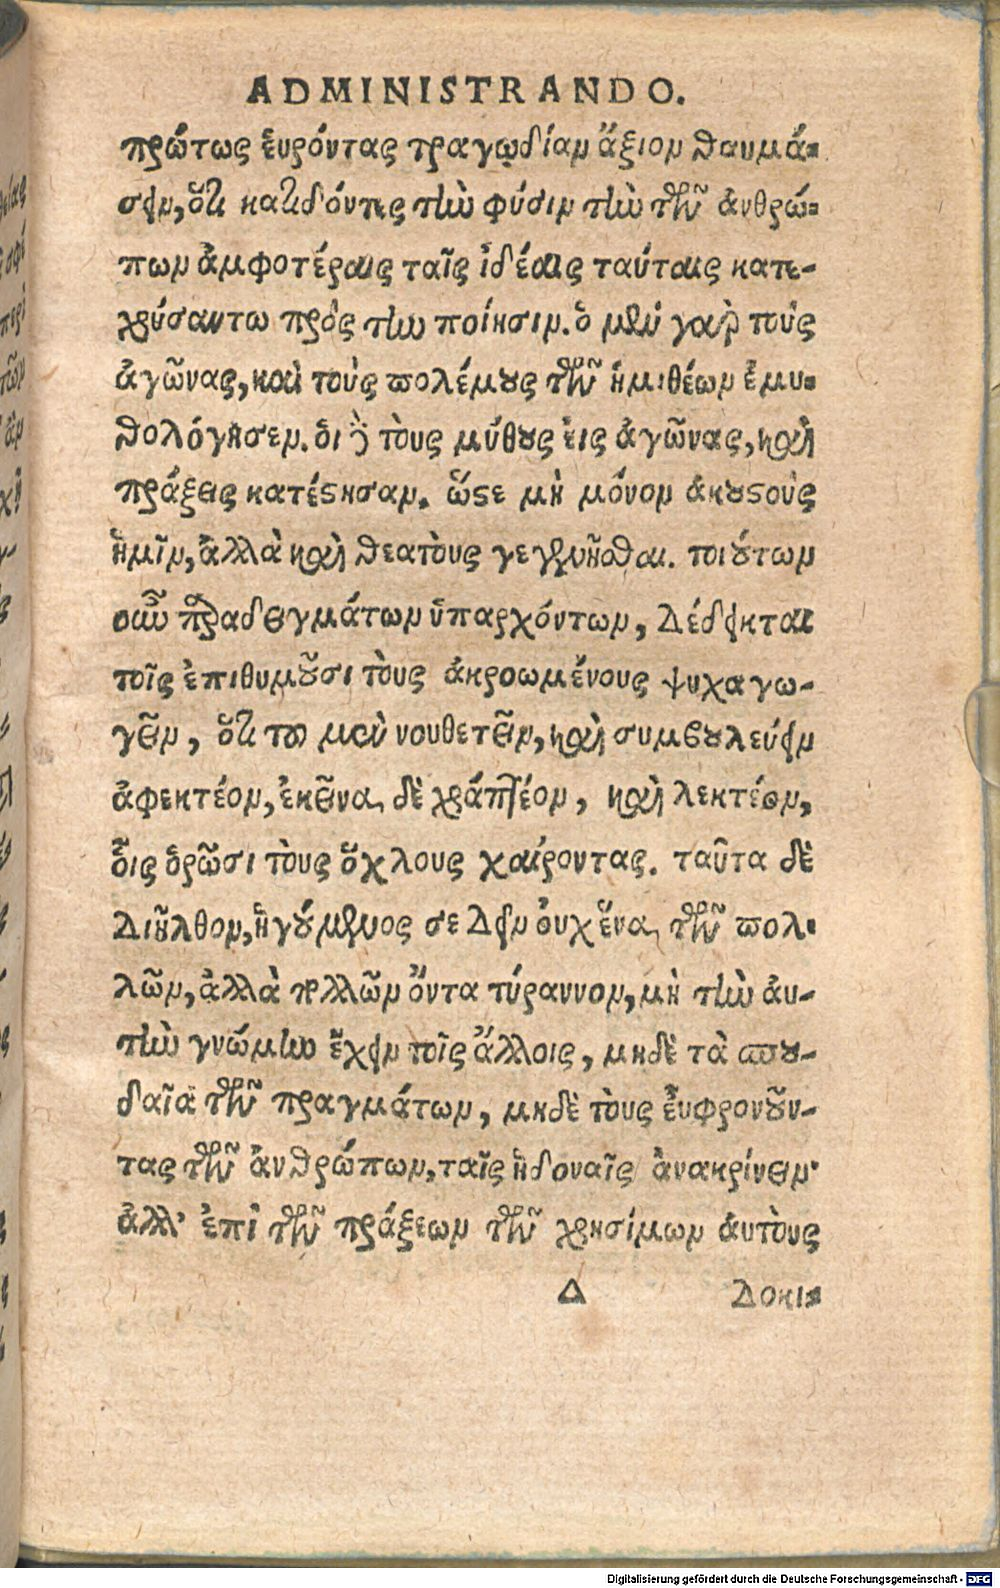 ADMINISTRANDO.
πρώτως ἑυρόντας τραγῳδίαν ἄξιον θαυμά-
σειν, ὅτι κατιδόντες τὴν φύσιν τὴν τῶν ἀνθρώ-
πων ἀμφοτέραις ταῖς ἰδέαις ταύταις κατε-
χρύσαντο πρὸς τὴν ποίησιν. ὁ μὲν γὰρ τοὺς
ἀγῶνας, καὶ τοὺς πολέμους τῶν ἡμιθέων ἐμυ-
θολόγησεν. ὁι δὲ τοὺς μύθους ἐις ἀγῶνας, καὶ
πράξεις κατέστησαν. ὥστε μὴ μόνον ἀκουστοὺς
ἡμῖν, ἀλλὰ καὶ θεατοὺς γεγενῆσθαι. τοιούτων
οὖν παραδειγμάτων ὑπαρχόντων, δέδεικται
τοῖς ἐπιθυμοῦσι τοὺς ἀκροωμένους ψυχαγω-
γεῖν, ὅτι τοῦ μὲν νουθετεῖν, καὶ συμβουλεύειν
ἀφεκτέον, ἐκεῖνα δὲ χράπτέον, καὶ λεκτέον,
οἷς ὁρῶσι τοὺς ὄχλους χαίροντας. ταῦτα δὲ
διῆλθον, ἡγούμενος σε δεῖν ὀυχ ἕνα τῶν πολ-
λῶν, ἀλλὰ πολλῶν ὄντα τύραννον, μὴ τὴν ἀυ-
τὴν γνώμην ἔχειν τοῖς ἄλλοις, μηδὲ τὰ σπου-
δαῖα τῶν πραγμάτων, μηδὲ τοὺς ἐυφρονοῦν-
τας τῶν ἀνθρώπων, ταῖς ἡδοναῖς ἀνακρίνειν·
ἀλλ' ἐπὶ τῶν πράξεων τῶν χρησίμων ἀυτοὺς
Δ δοκι-
Digitalisierung gefördert durch die Deutsche Forschungsgemeinschaft - DFG